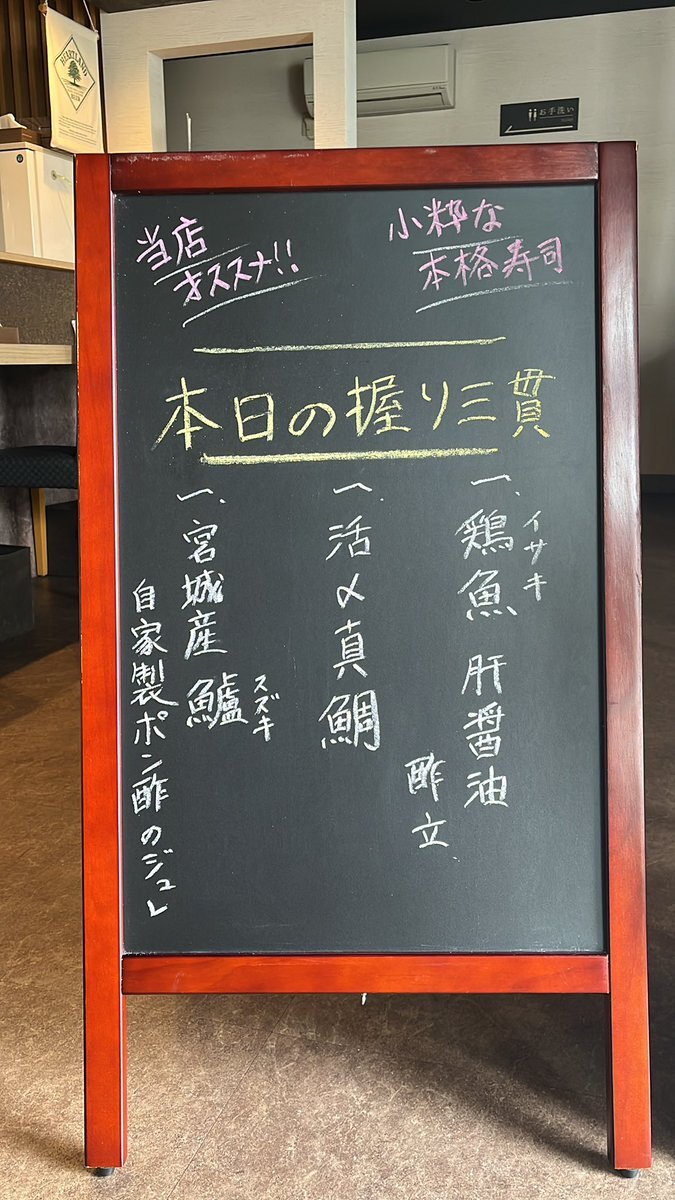 HEARTLAND
BEER
お手洗い
当店
オススメ!!
小粋な
本格寿司
本日の握り三貫
一、鶏魚 肝醤油
イサキ
酢立
一、活〆真鯛
一、宮城産 鱸
スズキ
自家製ポン酢のジュレ